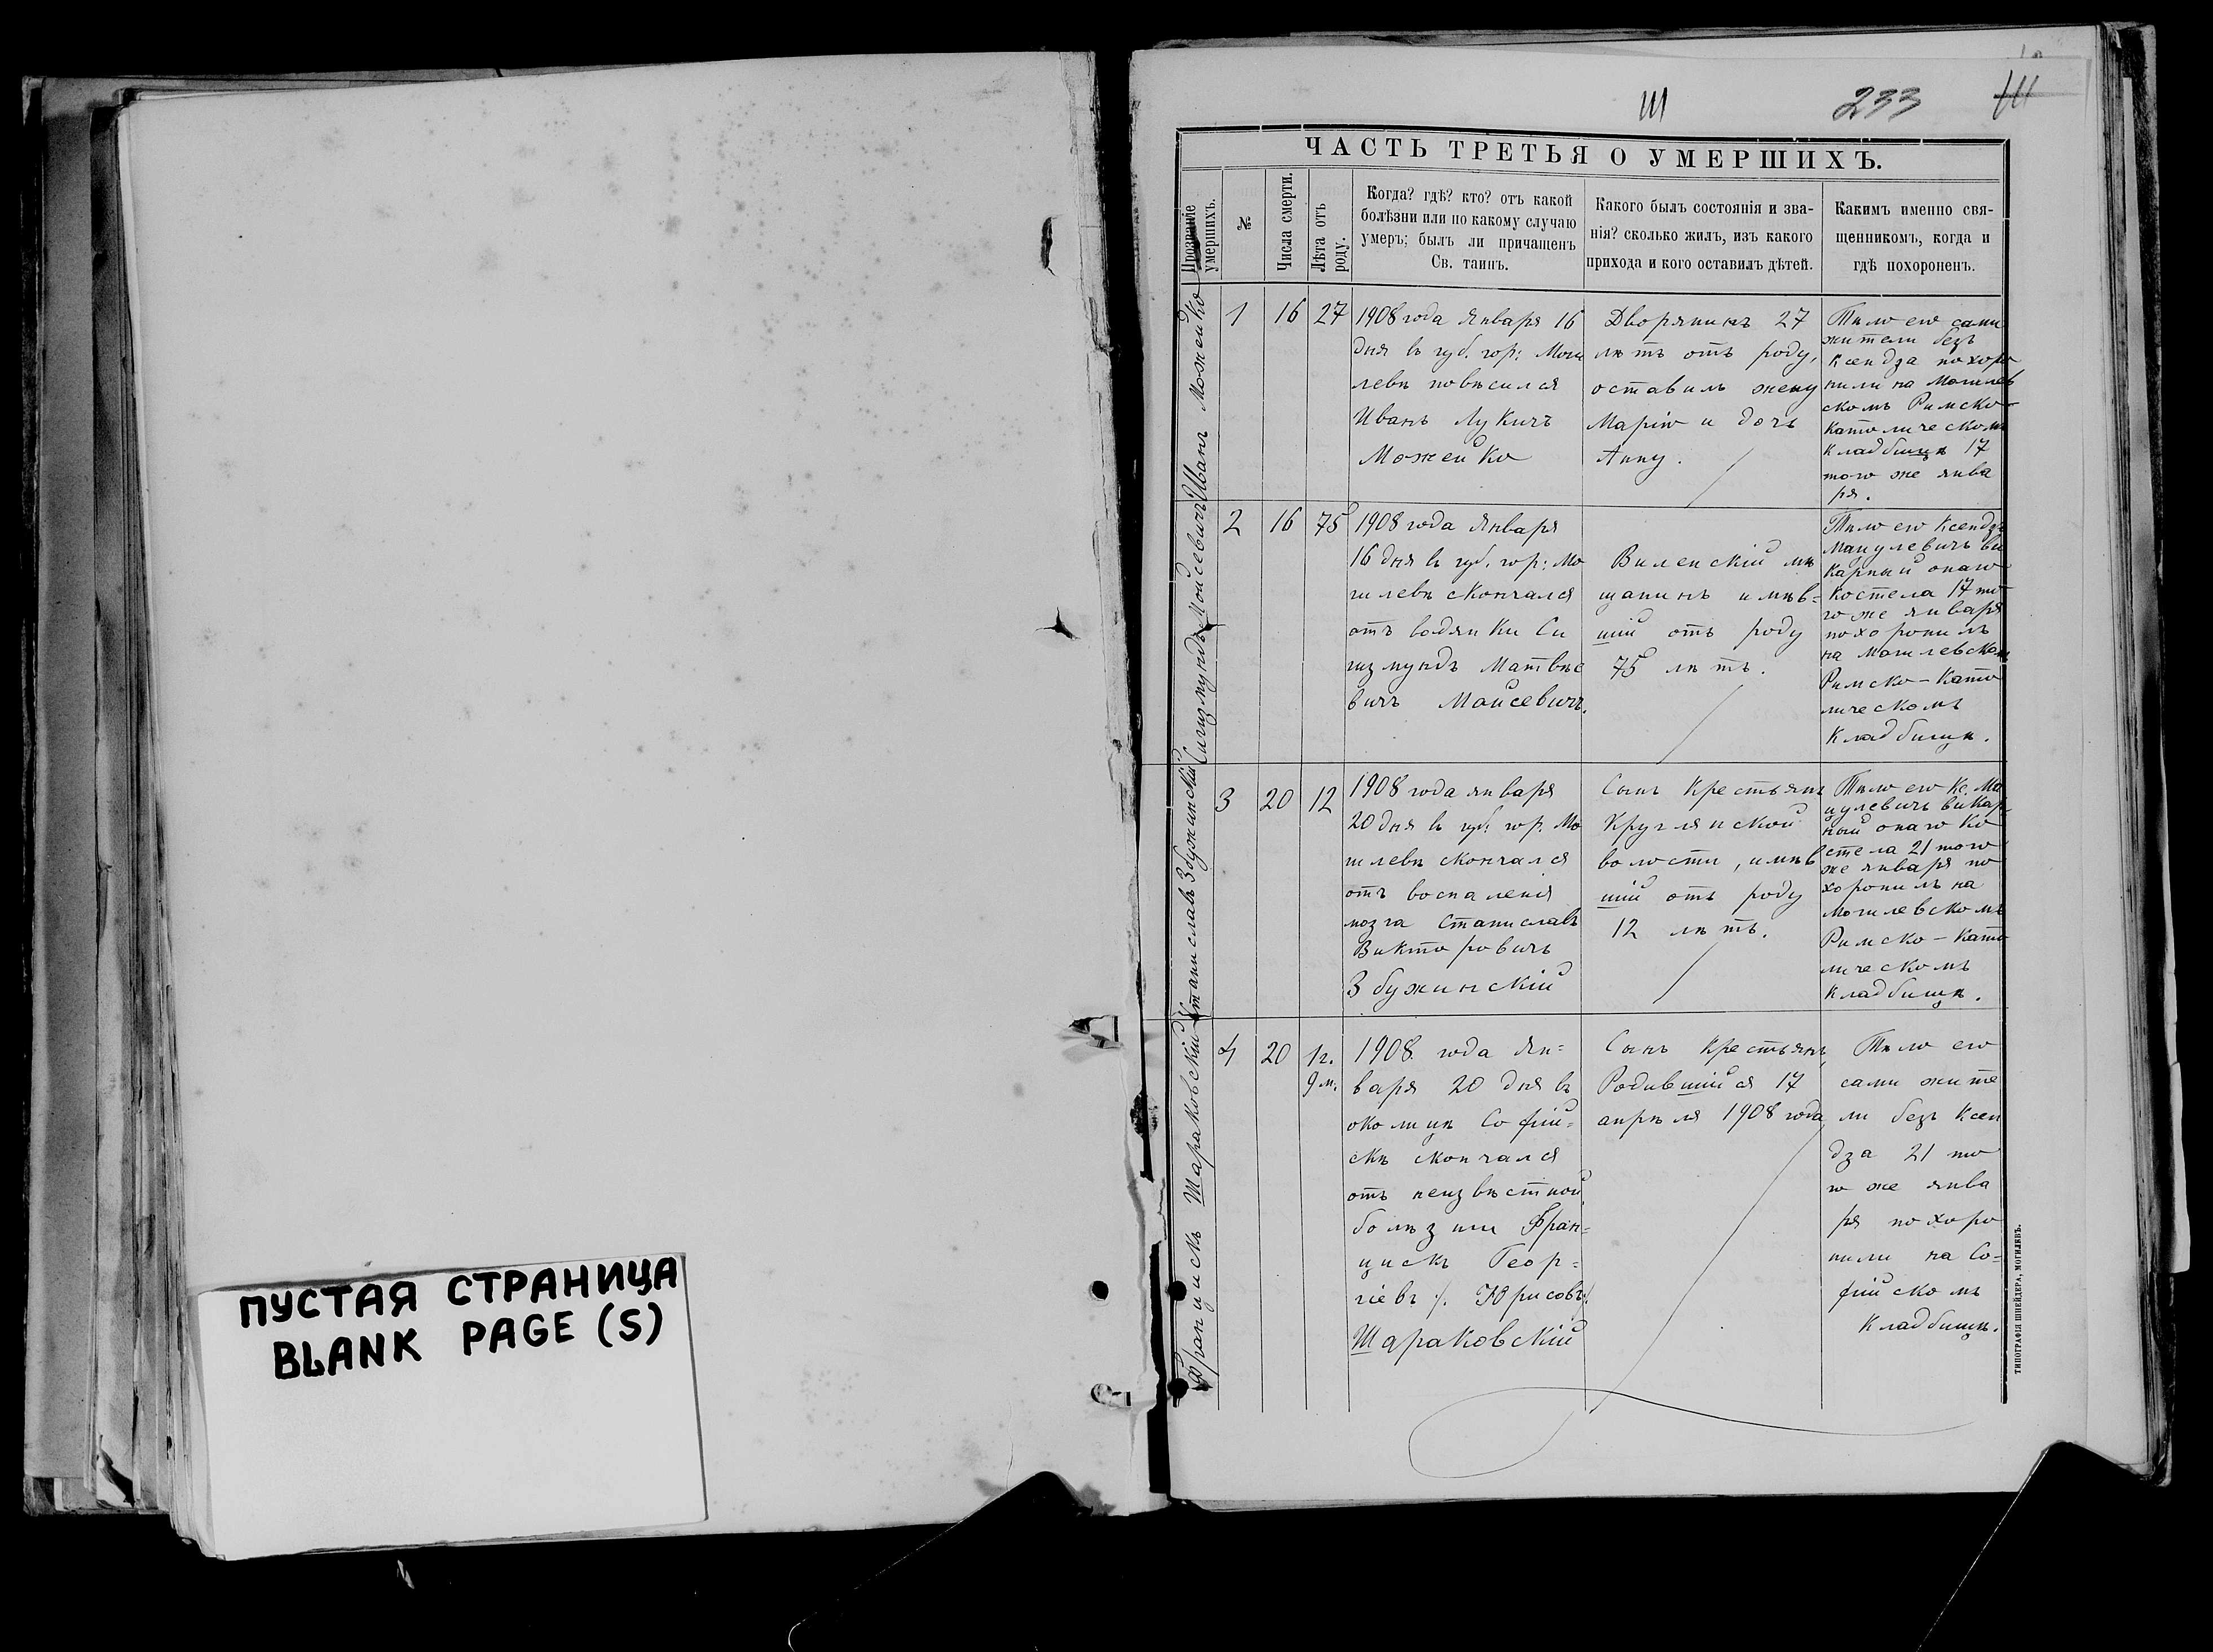 ПУСТАЯ СТРАНИЦА
BLANK PAGE (S)
111
233
111
ЧАСТЬ ТРЕТЬЯ О УМЕРШИХЪ.
Прозваніе
умершихъ.
№
Числа смерти.
Лѣта отъ
роду.
Когда? гдѣ? кто? отъ какой
болѣзни или по какому случаю
умеръ; былъ ли причащенъ
Св. таинъ.
Какого былъ состоянія и зва-
нія? сколько жилъ, изъ какого
прихода и кого оставилъ дѣтей.
Какимъ именно свя-
щенникомъ, когда и
гдѣ похороненъ.
Иванъ Можейко
1
16
27
1908 года Января 16
дня въ губ. гор: Моги
левѣ повѣсился
Иванъ Лукичъ
Можейко
Дворянинъ 27
лѣтъ отъ роду,
оставилъ жену
Марію и дочь
Анну.
Тѣло его сами
жители безъ
Ксендза похоро
нили на Могилев
скомъ Римско-
Католическомъ
Кладбищѣ 17
того же янва
ря.
Сигизмундъ Мойсевичъ
2
16
75
1908 года Января
16 дня въ губ. гор: Мо
гилевѣ скончался
отъ водянки Си
гизмундъ Матвѣе
вичъ Мойсевичъ.
Виленскій мѣ
щанинъ имѣв=
шій отъ роду
75 лѣтъ.
Тѣло его Ксендзъ
Мацулевичъ ви
карный онаго
Костела 17 то
го же января
похоронилъ
на Могилевском
Римско-Като
лическомъ
Кладбищѣ.
Станиславъ Збужинскій
3
20
12
1908 года января
20 дня въ губ. гор. Мо
гилевѣ скончался
отъ воспаленія
мозга Станиславъ
Викторовичъ
Збужинскій
Сынъ Крестьянъ
Круглянской
волости, имѣв
шій отъ роду
12 лѣтъ.
Тѣло его Кс. Ма
цулевичъ викар
ный онаго Ко
стела 21 того
же января по
хоронилъ на
Могилевскомъ
Римско-Като
лическомъ
Кладбищѣ.
Францискъ Шараковскій
4
20
1 г.
9 м.
1908 года Ян=
варя 20 дня въ
околицѣ Софій=
скѣ скончался
отъ неизвѣстной
болѣзни Фран=
цискъ Геор=
гіевъ /. Юрисовъ ./
Шараковскій
Сынъ Крестьянъ
Родившійся 17
апрѣля 1908 года
Тѣло его
сами жите
ли безъ Ксен
дза 21 то
го же янва
ря похоро
нили на Со=
фійскомъ
Кладбищѣ.
ТИПОГРАФІЯ ШНЕЙДЕРА, МОГИЛЕВЪ.